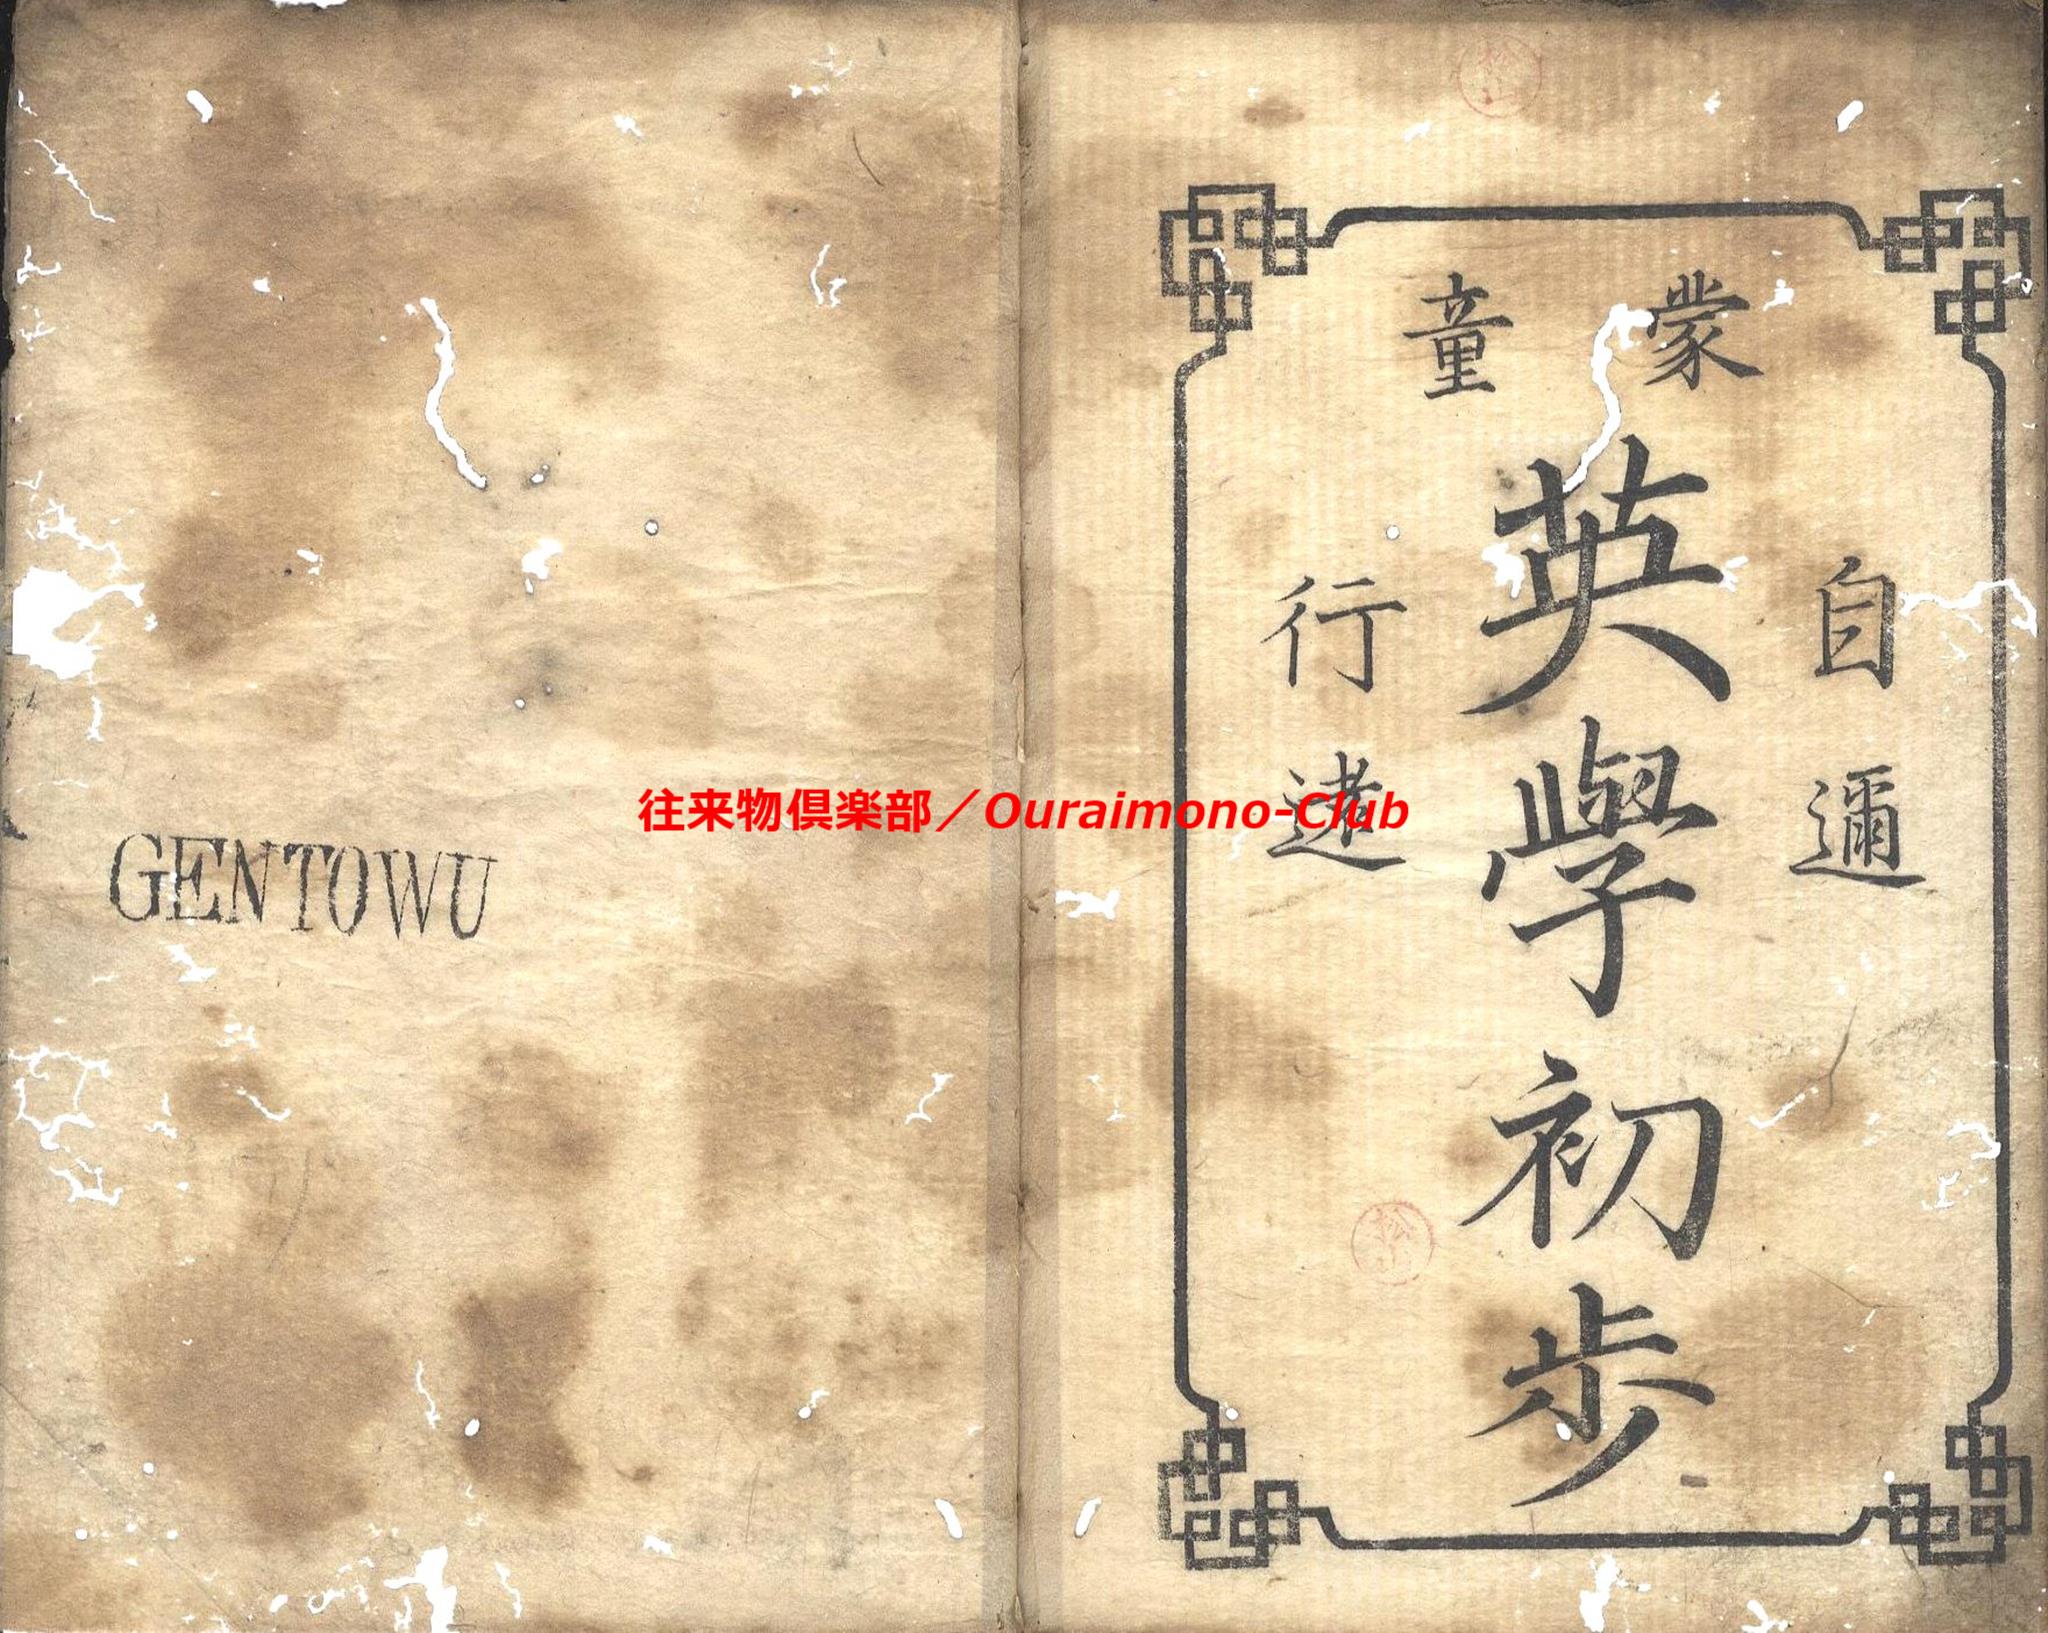 蒙童
自邇
英學初歩
行遠
GENTOWU
往来物倶楽部／Ouraimono-Club